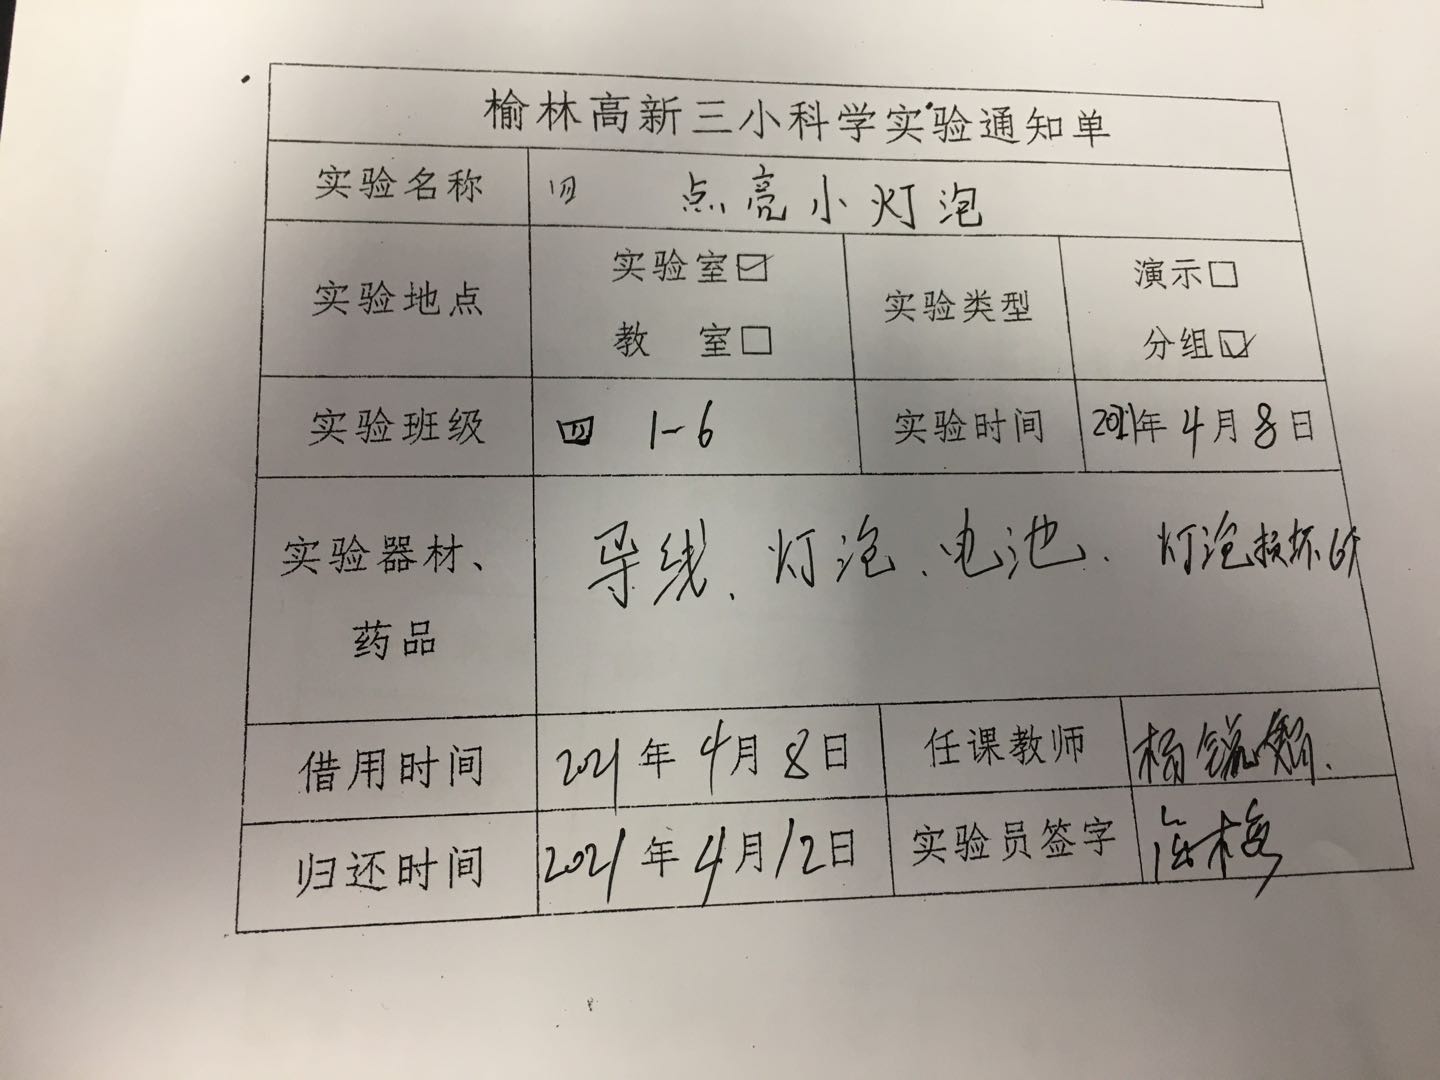 榆林高新三小科学实验通知单
实验名称 四 点亮小灯泡
实验地点 实验室☑ 教 室□ 实验类型 演示□ 分组☑
实验班级 四 1-6 实验时间 2021年4月8日
实验器材、药品 导线、灯泡、电池、灯泡损坏6个
借用时间 2021年4月8日 任课教师 杨
归还时间 2021年4月12日 实验员签字 梅